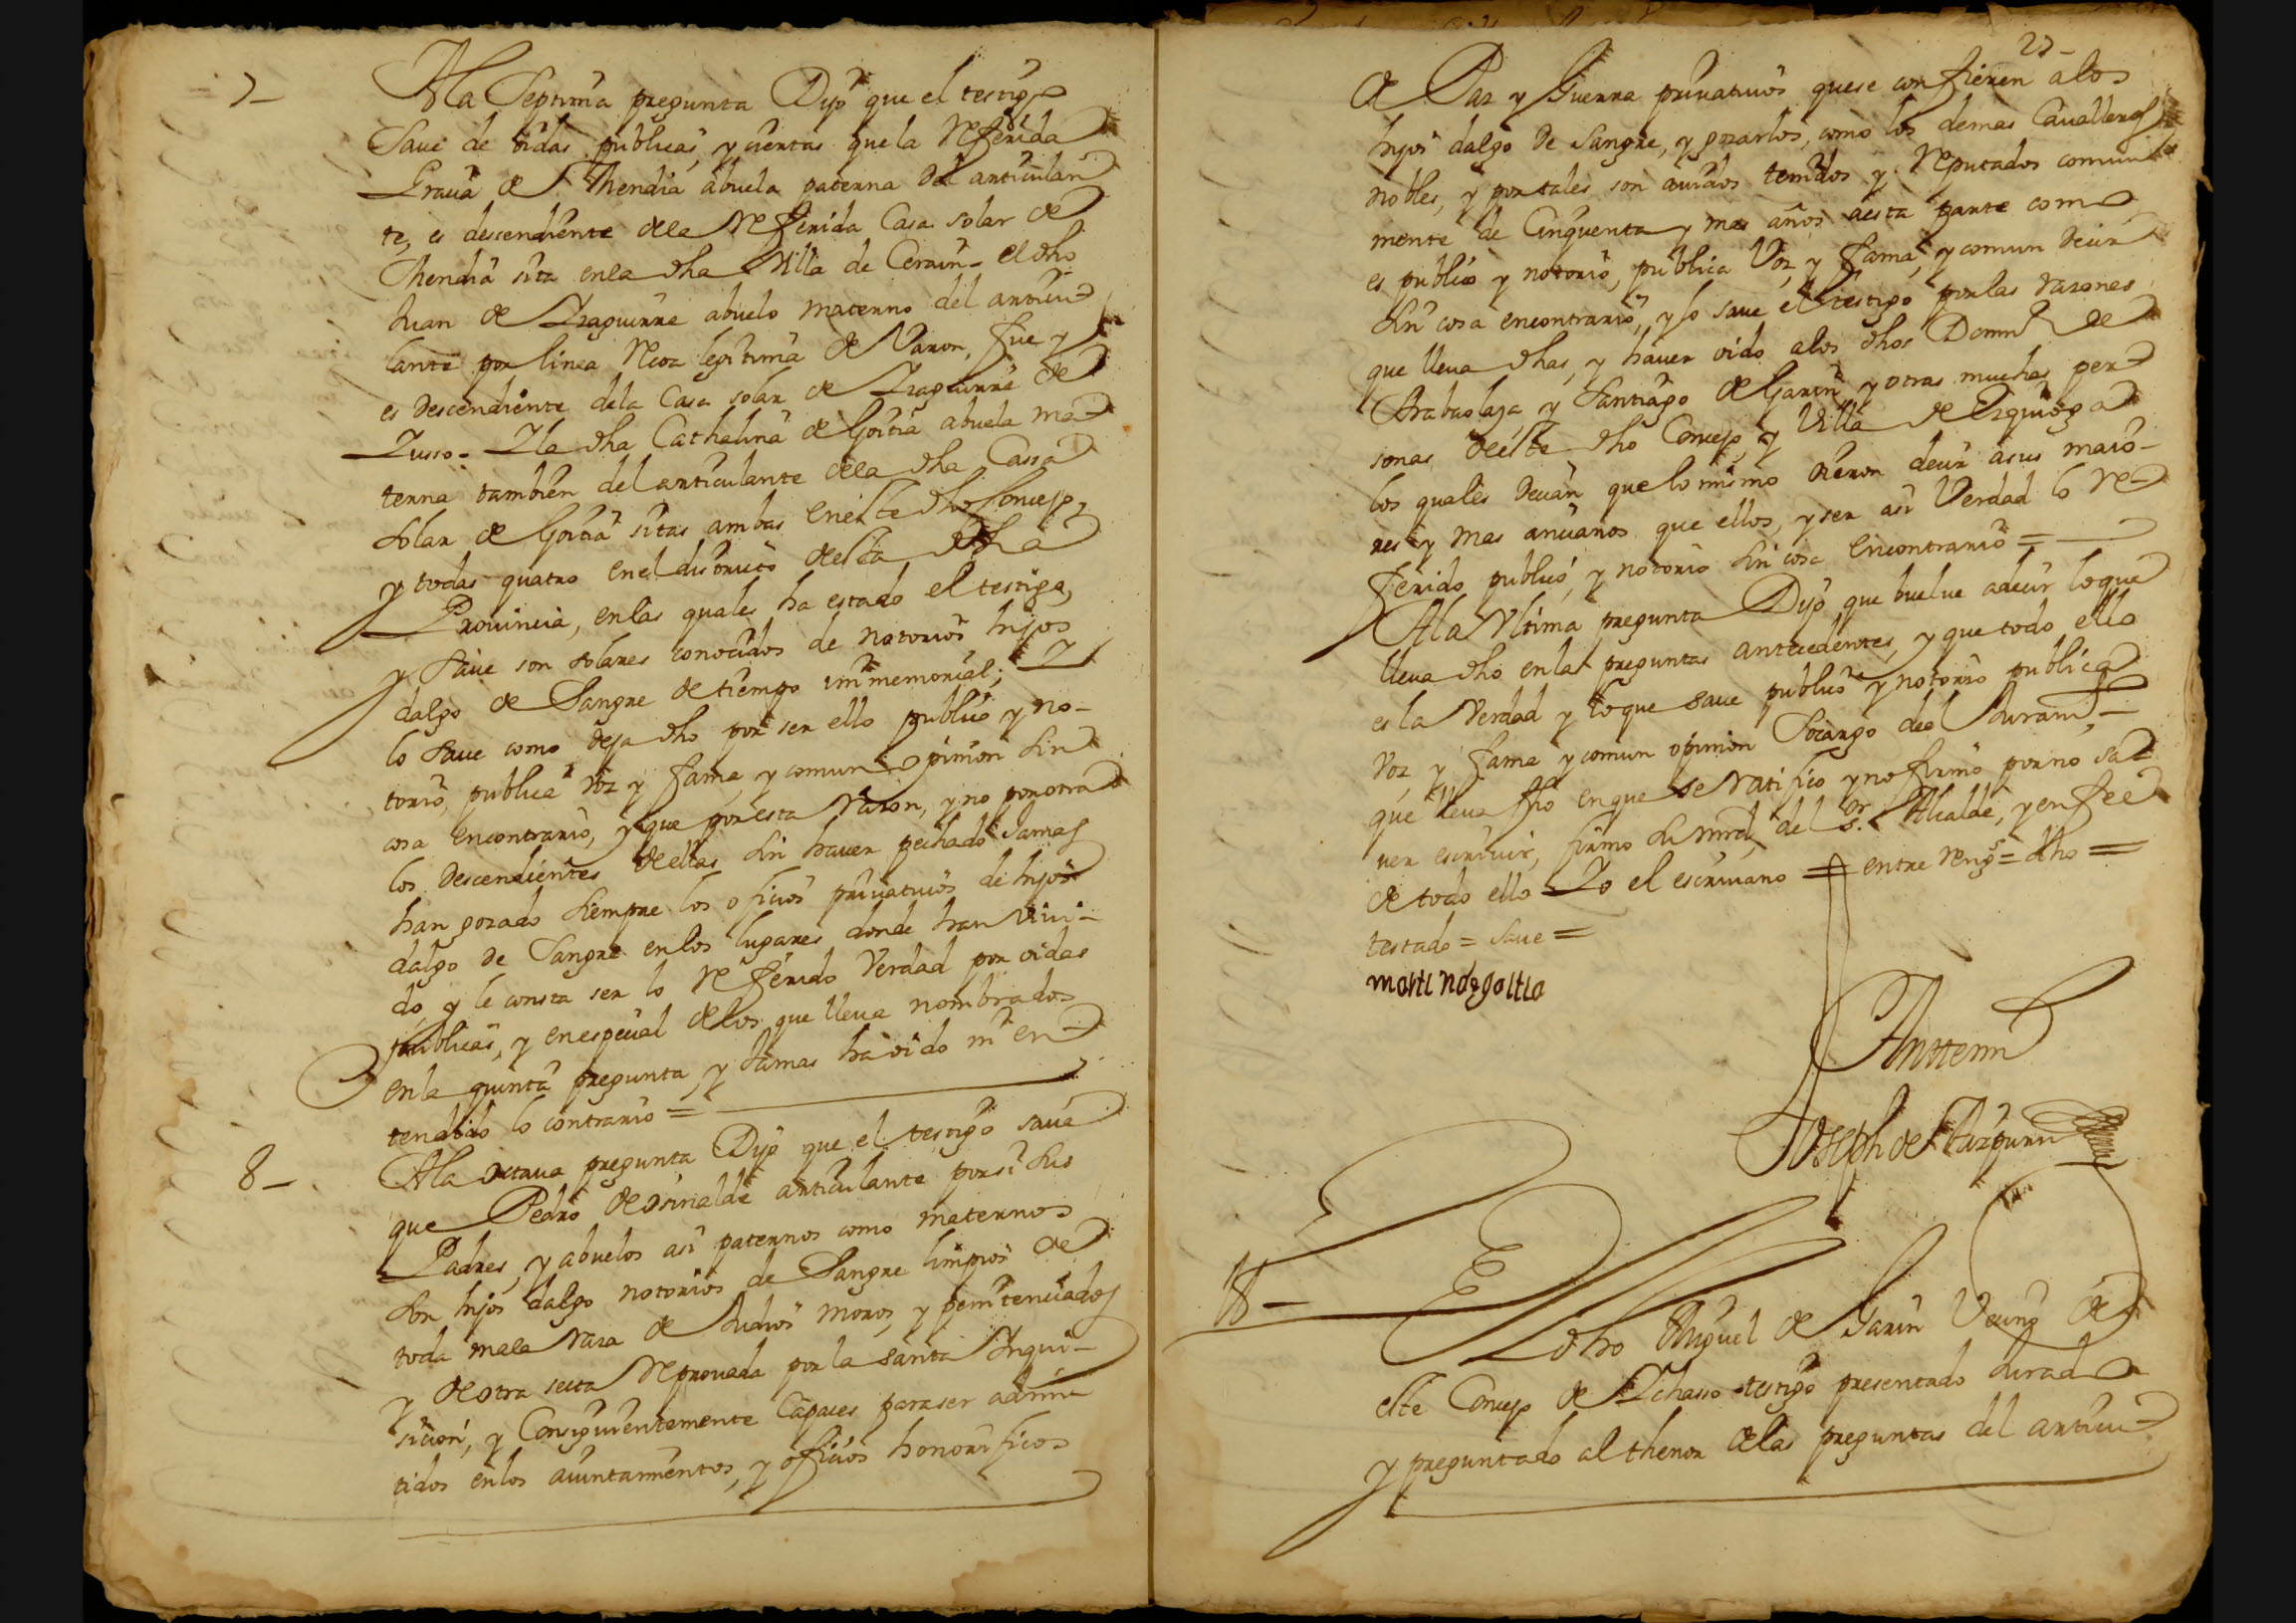 7–
A la Septima pregunta Dijo que el testigo
Save de oidas publicas, y ciertas que la Referida
Gracia de Thendia abuela paterna del articulan
te, es descendiente de la Referida Casa solar de
Thendia sita en la dha Villa de Cerain. el dho
Juan de Izaguirre abuelo materno del articu
lante por linea Recta legitima de Varon, fue y
es Descendiente de la Casa solar de Izaguirre de
Zusso. Y la dha Cathalina de Goitia abuela ma
terna tambien del articulante de la dha Cassa
solar de Goitia sitas ambas en este dho Concejo,
y todas quatro en el distrito desta dha
Provincia, en las quales ha estado el testigo,
y save son solares conocidos de notorios hijos
dalgo de Sangre de tiempo immemorial; Y
lo save como deja dho por ser ello publico y no-
torio, publica voz y fama, y comun opinion sin
cosa en contrario, y que por esta Razon, y no por otra
los Descendientes de ellas sin haver pechado Jamas
han gozado siempre los oficios privativos de hijos
dalgo de Sangre en los lugares donde han vivi-
do, y le consta ser lo Referido Verdad por oidas
publicas, y en especial de los que lleva nombrados
en la quinta pregunta, y Jamas ha oido ni en
tendido lo contrario =
8–
A la octava pregunta Dijo que el testigo save
que Pedro de Osinalde articulante por si sus
Padres, y abuelos asi paternos como maternos
son hijos dalgo notorios de Sangre limpios de
toda mala raza de Judios Moros, y penitenciados
y de otra secta Reprovada por la santa Inqui-
sicion, y Consiguientemente Capaces para ser admi
tidos en los aiuntamientos, y oficios honorificos
27–
de Paz y Guerra privativos que se confieren a los
hijos dalgo de Sangre, y gozarlos, como los demas Cavalleros
nobles, y por tales son avidos tenidos y Reputados comun
mente de Cinquenta y mas años a esta parte como
es publico y notorio, publica Voz, y fama, y comun decir
sin cosa en contrario, y lo save el testigo por las razones
que lleva dhas, y haver oido a los dhos Domingo de
Arabaolaza, y Santiago de Garin y otras muchas per
sonas de este dho Concejo, y Villa de Ezquioga
los quales decian que lo mismo oieron decir a sus maio-
res y mas ancianos que ellos, y ser asi Verdad lo Re
ferido publico, y notorio sin cosa en contrario =
A la Vltima pregunta Dijo que buelve a decir lo que
lleva dho en las preguntas antecedentes, y que todo ello
es la Verdad y lo que save publico y notorio publica
voz, y fama y comun opinion So cargo del Juramto
que lleva fho en que se ratifico y no firmo por no sa
ver escrivir, firmo su mrd del sor. Alcalde, y en fee
de todo ello Yo el escrivano = entre rengs = dho =
testado = save =
martin de goitia
Ante mi
Joseph de Aizpuru
18–
El dho Miguel de Garin Vecino de
este Concejo de Ichasso testigo presentado Jurado
y preguntado al thenor de las preguntas del articu